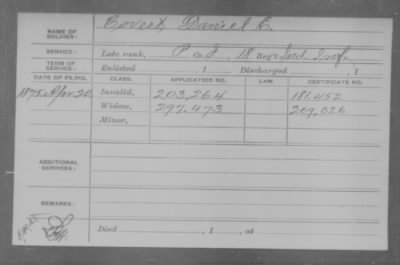 NAME OF SOLDIER: Covert, Daniel C.
SERVICE: Late rank, Pvt Co. I, 18 Reg't Ind. Inf.
TERM OF SERVICE: Enlisted , 1 Discharged , 1
DATE OF FILING. CLASS. APPLICATION NO. LAW. CERTIFICATE NO.
1875, Apr. 20. Invalid, 203,264 181,452
Widow, 297,473 209,026
Minor,
ADDITIONAL SERVICES:
REMARKS:
Died , 1 , at